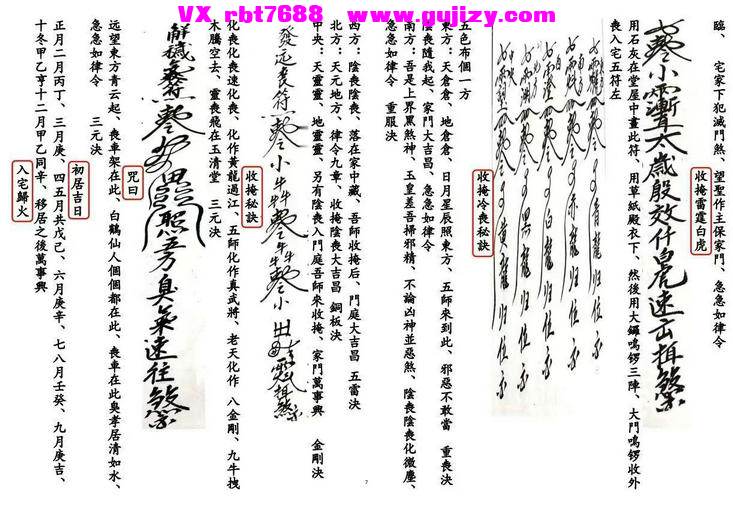 VX rbt7688 www.gujizy.com
臨、 宅家下犯滅門煞、望聖作主保家門、急急如律令
收掩雷霆白虎
太歲殷效什白虎速去掛煞
用石灰在堂屋中畫此符、用草紙殿衣下、然後用大鑼鳴鑼三陣、大門鳴鑼收外
喪入宅五符左
青龍归位
赤龍归位
白龍归位
黑龍归位
黃龍归位
收掩冷喪秘訣
五色布個一方
東方：天倉倉、地倉倉、日月星辰照東方、五師來到此、邪惡不敢當 重喪決
陰喪隨我起、家門大吉昌、急急如律令
南方：吾是上界黑煞神、玉皇差吾掃邪精、不論凶神並惡煞、陰喪陰喪化微塵、
急急如律令 重服決
西方：陰喪陰喪、落在家中藏、吾師收掩后、門庭大吉昌 五雷決
北方：天元地方、律令九章、收掩陰喪大吉昌 銅板決
中央：天靈靈、地靈靈、另有陰喪入門庭吾師來收掩、家門萬事興 金剛決
發送喪符
收掩秘訣
化喪化喪速化喪、化作黃龍過江、五師化作真武將、老天化作八金剛、九牛拽
木騰空去、靈喪飛在玉清堂 三元決
解穢喪符
照五方臭氣速往煞
咒曰
遠望東方青云起、喪車架在此、白鶴仙人個個都在此、喪車在此臭孝居清如水、
急急如律令 三元決
初居吉日
正月二月丙丁、三月庚、四五月共戊己、六月庚辛、七八月壬癸、九月庚吉、
十冬甲乙亨十二月甲乙同辛、移居之後萬事興
入宅歸火
7